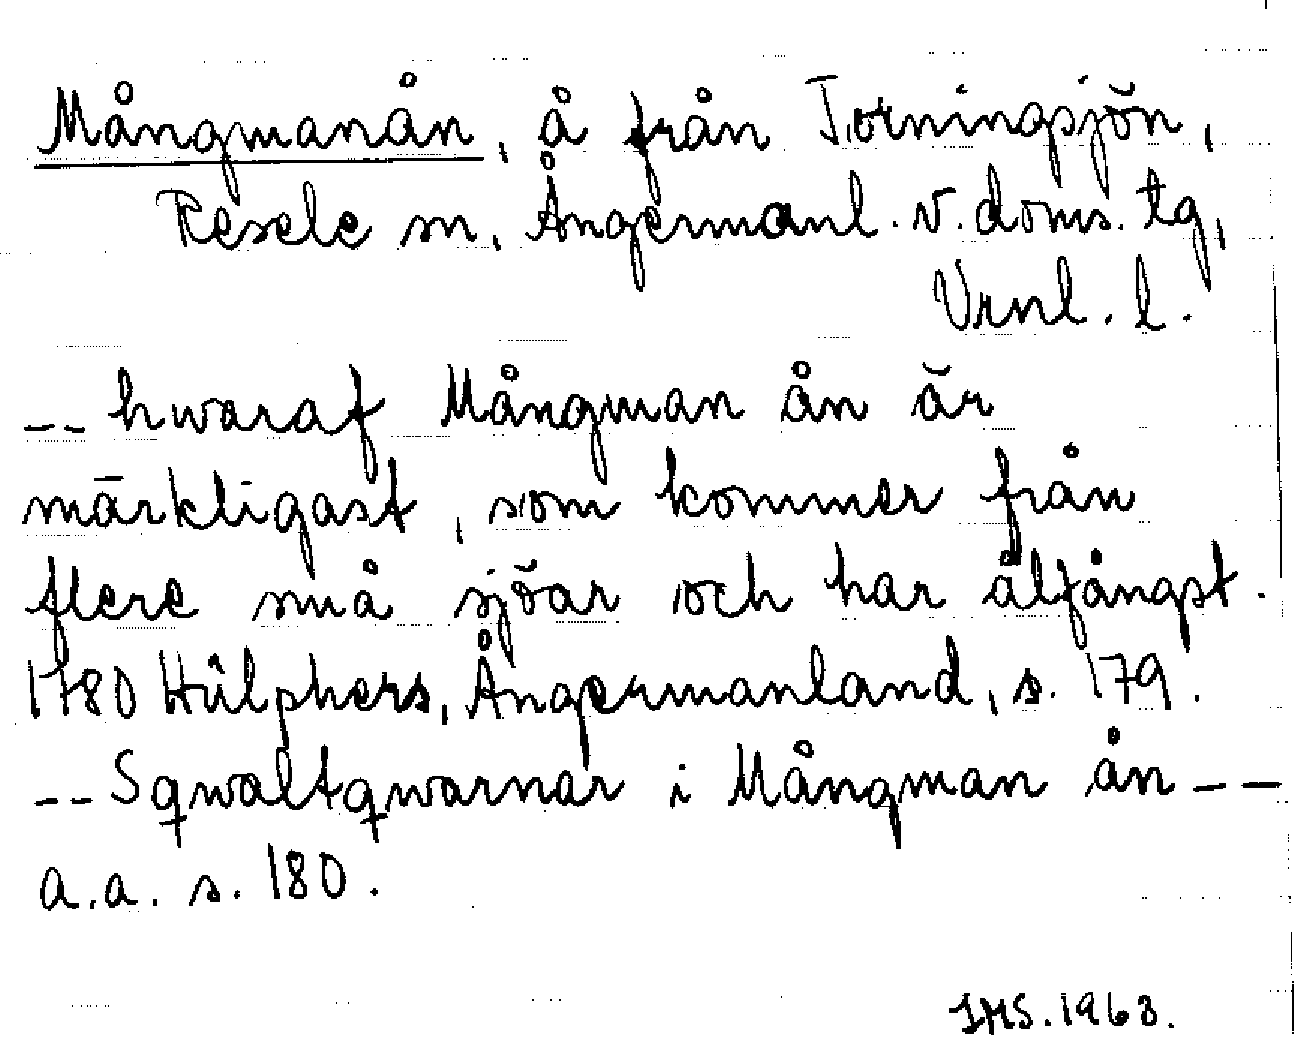 Mångmanån, å från Torningsjön,
Resele sn, Ångermanl. v. doms. tg,
Vrnl. l.
-- hwaraf Mångman ån är
märkligast, som kommer från
flere små sjöar och har ålfångst.
1780 Hülphers, Ångermanland, s. 179.
-- Sqwaltqwarnar i Mångman ån --
a.a. s. 180.
IMS. 1963.